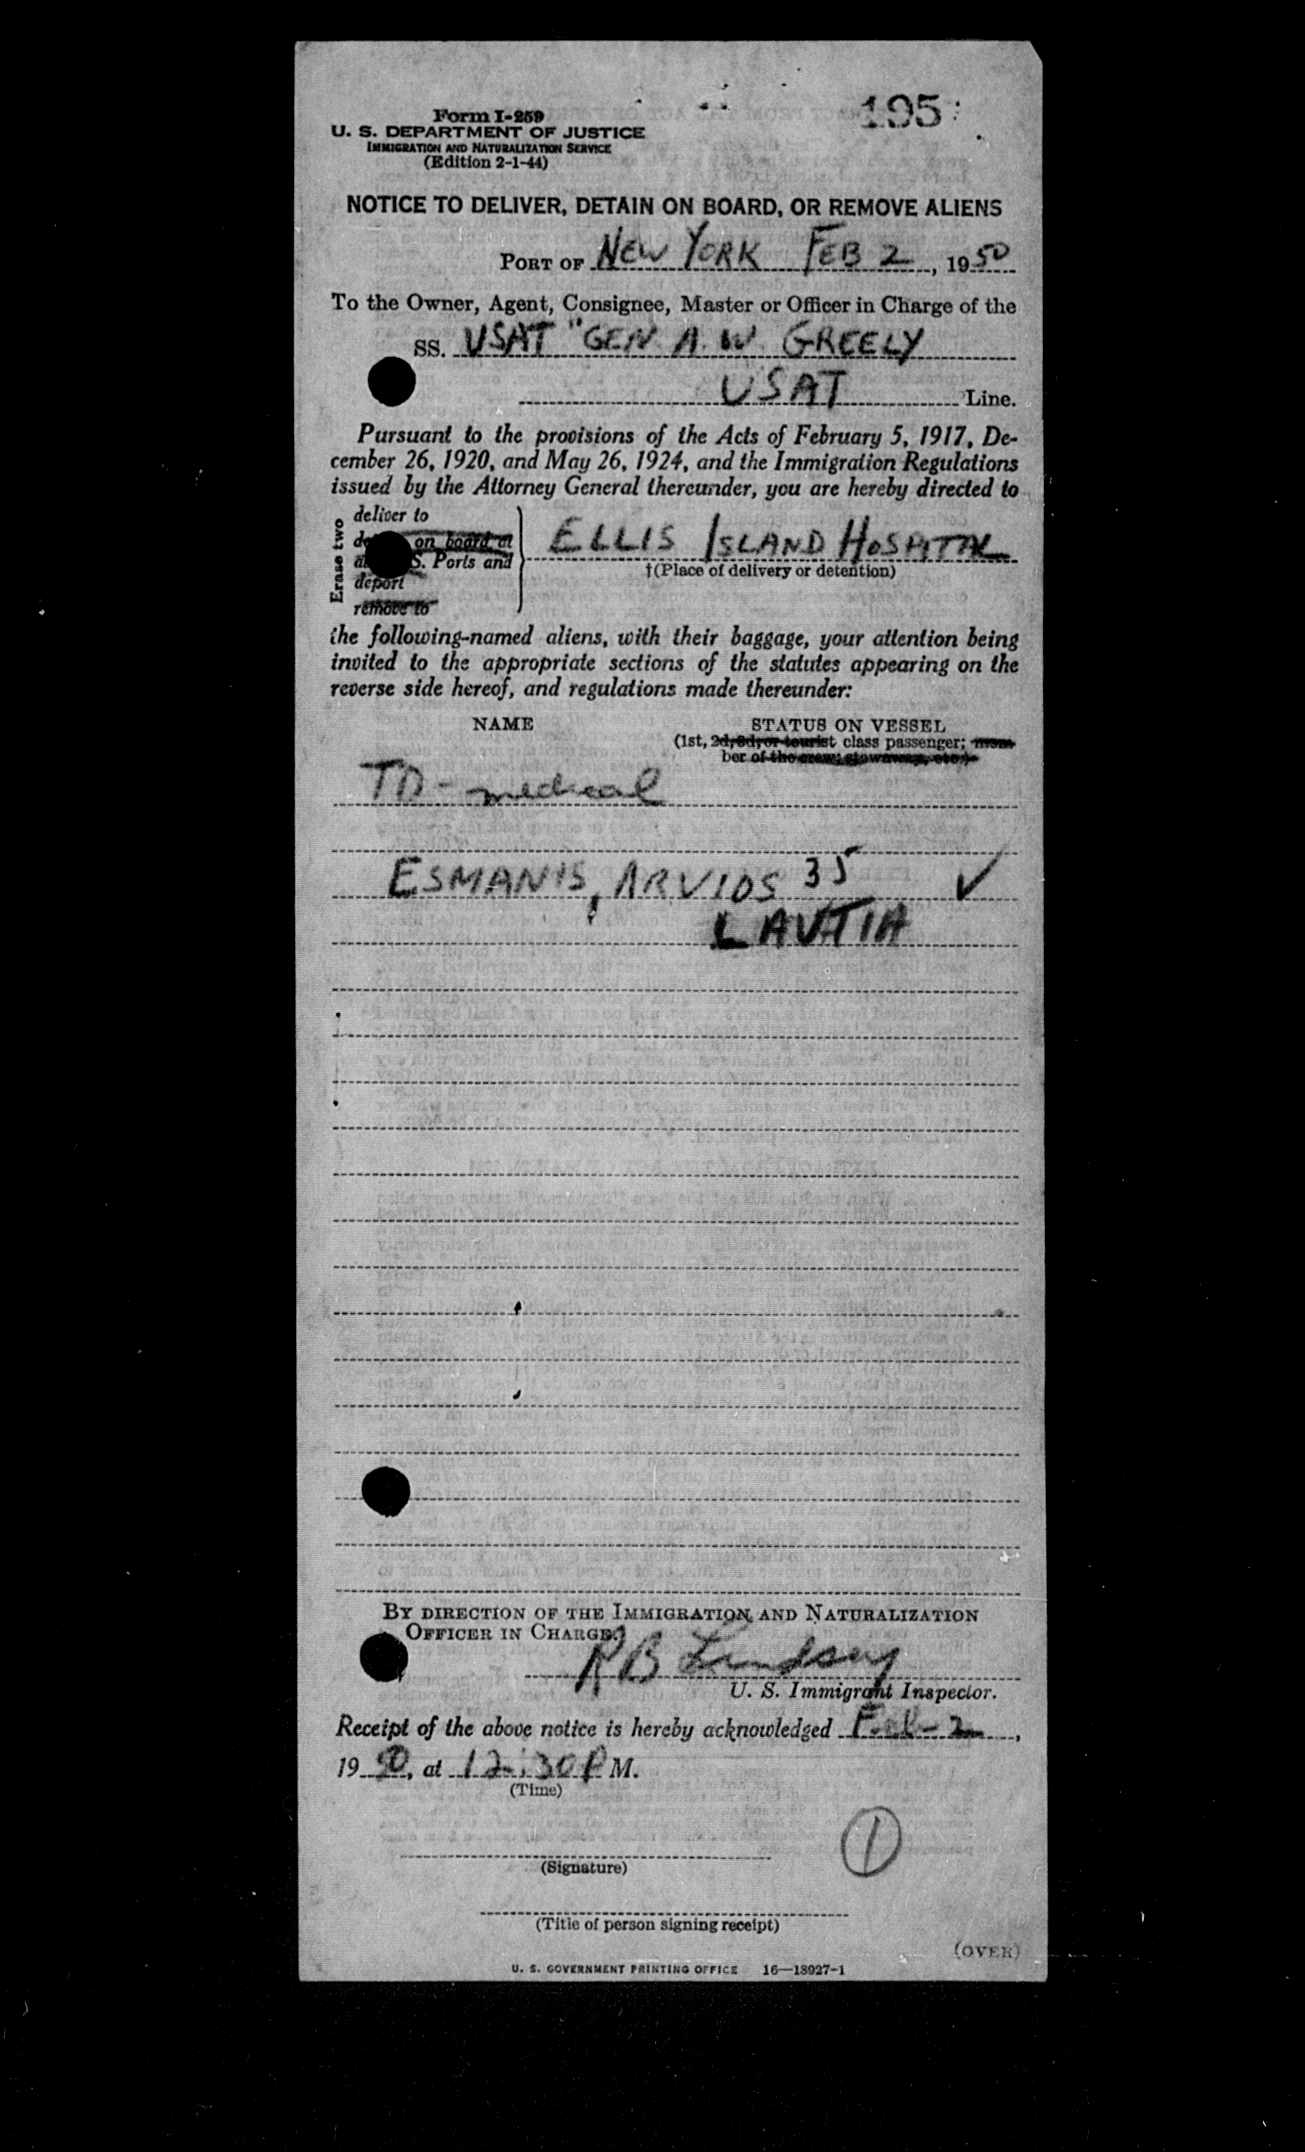 195
Form I-259
U. S. DEPARTMENT OF JUSTICE
IMMIGRATION AND NATURALIZATION SERVICE
(Edition 2-1-44)
NOTICE TO DELIVER, DETAIN ON BOARD, OR REMOVE ALIENS
PORT OF NEW YORK FEB 2, 1950
To the Owner, Agent, Consignee, Master or Officer in Charge of the
SS. USAT "GEN A. W. GREELY
USAT Line.
Pursuant to the provisions of the Acts of February 5, 1917, De-
cember 26, 1920, and May 26, 1924, and the Immigration Regulations
issued by the Attorney General thereunder, you are hereby directed to
Erase two
deliver to
on board at
S. Ports and
deport
remove to
ELLIS ISLAND HOSPITAL
†(Place of delivery or detention)
the following-named aliens, with their baggage, your attention being
invited to the appropriate sections of the statutes appearing on the
reverse side hereof, and regulations made thereunder:
NAME STATUS ON VESSEL
(1st, 2d, 3d, or tourist class passenger; mem-
ber of the crew, stowaway, etc.)
TD - medical
ESMANIS, ARVIDS 35 ✓
LAVTIA
BY DIRECTION OF THE IMMIGRATION AND NATURALIZATION
OFFICER IN CHARGE.
RB Lindsey
U. S. Immigrant Inspector.
Receipt of the above notice is hereby acknowledged Feb-2,
1950, at 12:30 P M.
(Time)
1
(Signature)
(Title of person signing receipt)
(OVER)
U. S. GOVERNMENT PRINTING OFFICE 16—18927-1